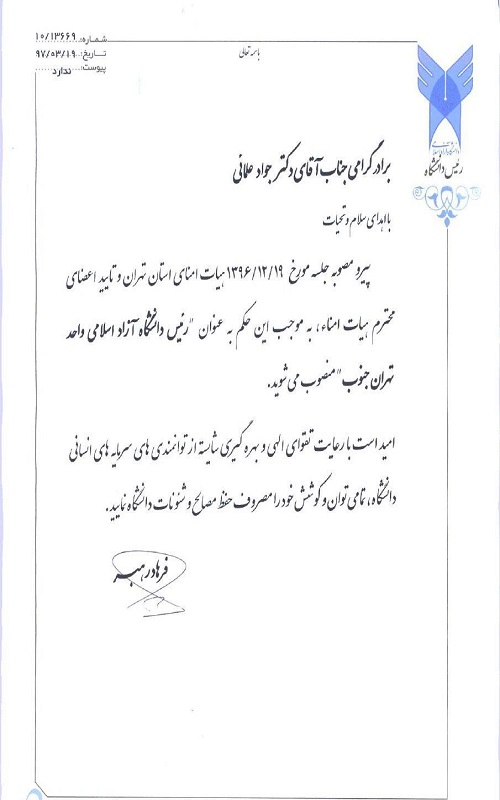 شماره: ۱۰/۱۳۶۶۹
تاریخ: ۹۷/۰۳/۱۹
پیوست: ندارد
باسمه تعالی
دانشگاه آزاد اسلامی
رئیس دانشگاه
برادر گرامی جناب آقای دکتر جواد علائی
با اهدای سلام و تحیات
پیرو مصوبه جلسه مورخ ۱۳۹۶/۱۲/۱۹ هیات امنای استان تهران و تایید اعضای
محترم هیات امناء، به موجب این حکم به عنوان "رئیس دانشگاه آزاد اسلامی واحد
تهران جنوب" منصوب می شوید.
امید است با رعایت تقوای الهی و بهره گیری شایسته از توانمندی های سرمایه های انسانی
دانشگاه، تمامی توان و کوشش خود را مصروف حفظ مصالح و شئونات دانشگاه نمایید.
فرهاد رهبر